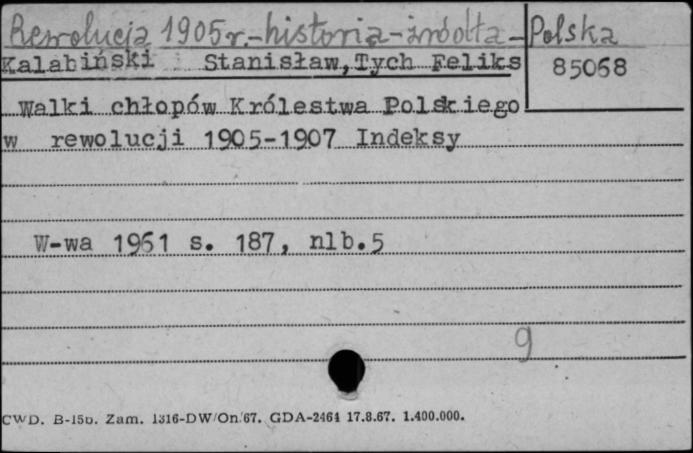 Rewolucja 1905 r. - historia - źródła - Polska
Kalabiński Stanisław, Tych Feliks
85068
Walki chłopów Królestwa Polskiego
w rewolucji 1905-1907 Indeksy
W-wa 1961 s. 187, nlb.5
9
CWD. B-15b. Zam. 1316-DW/On/67. GDA-2464 17.8.67. 1.400.000.